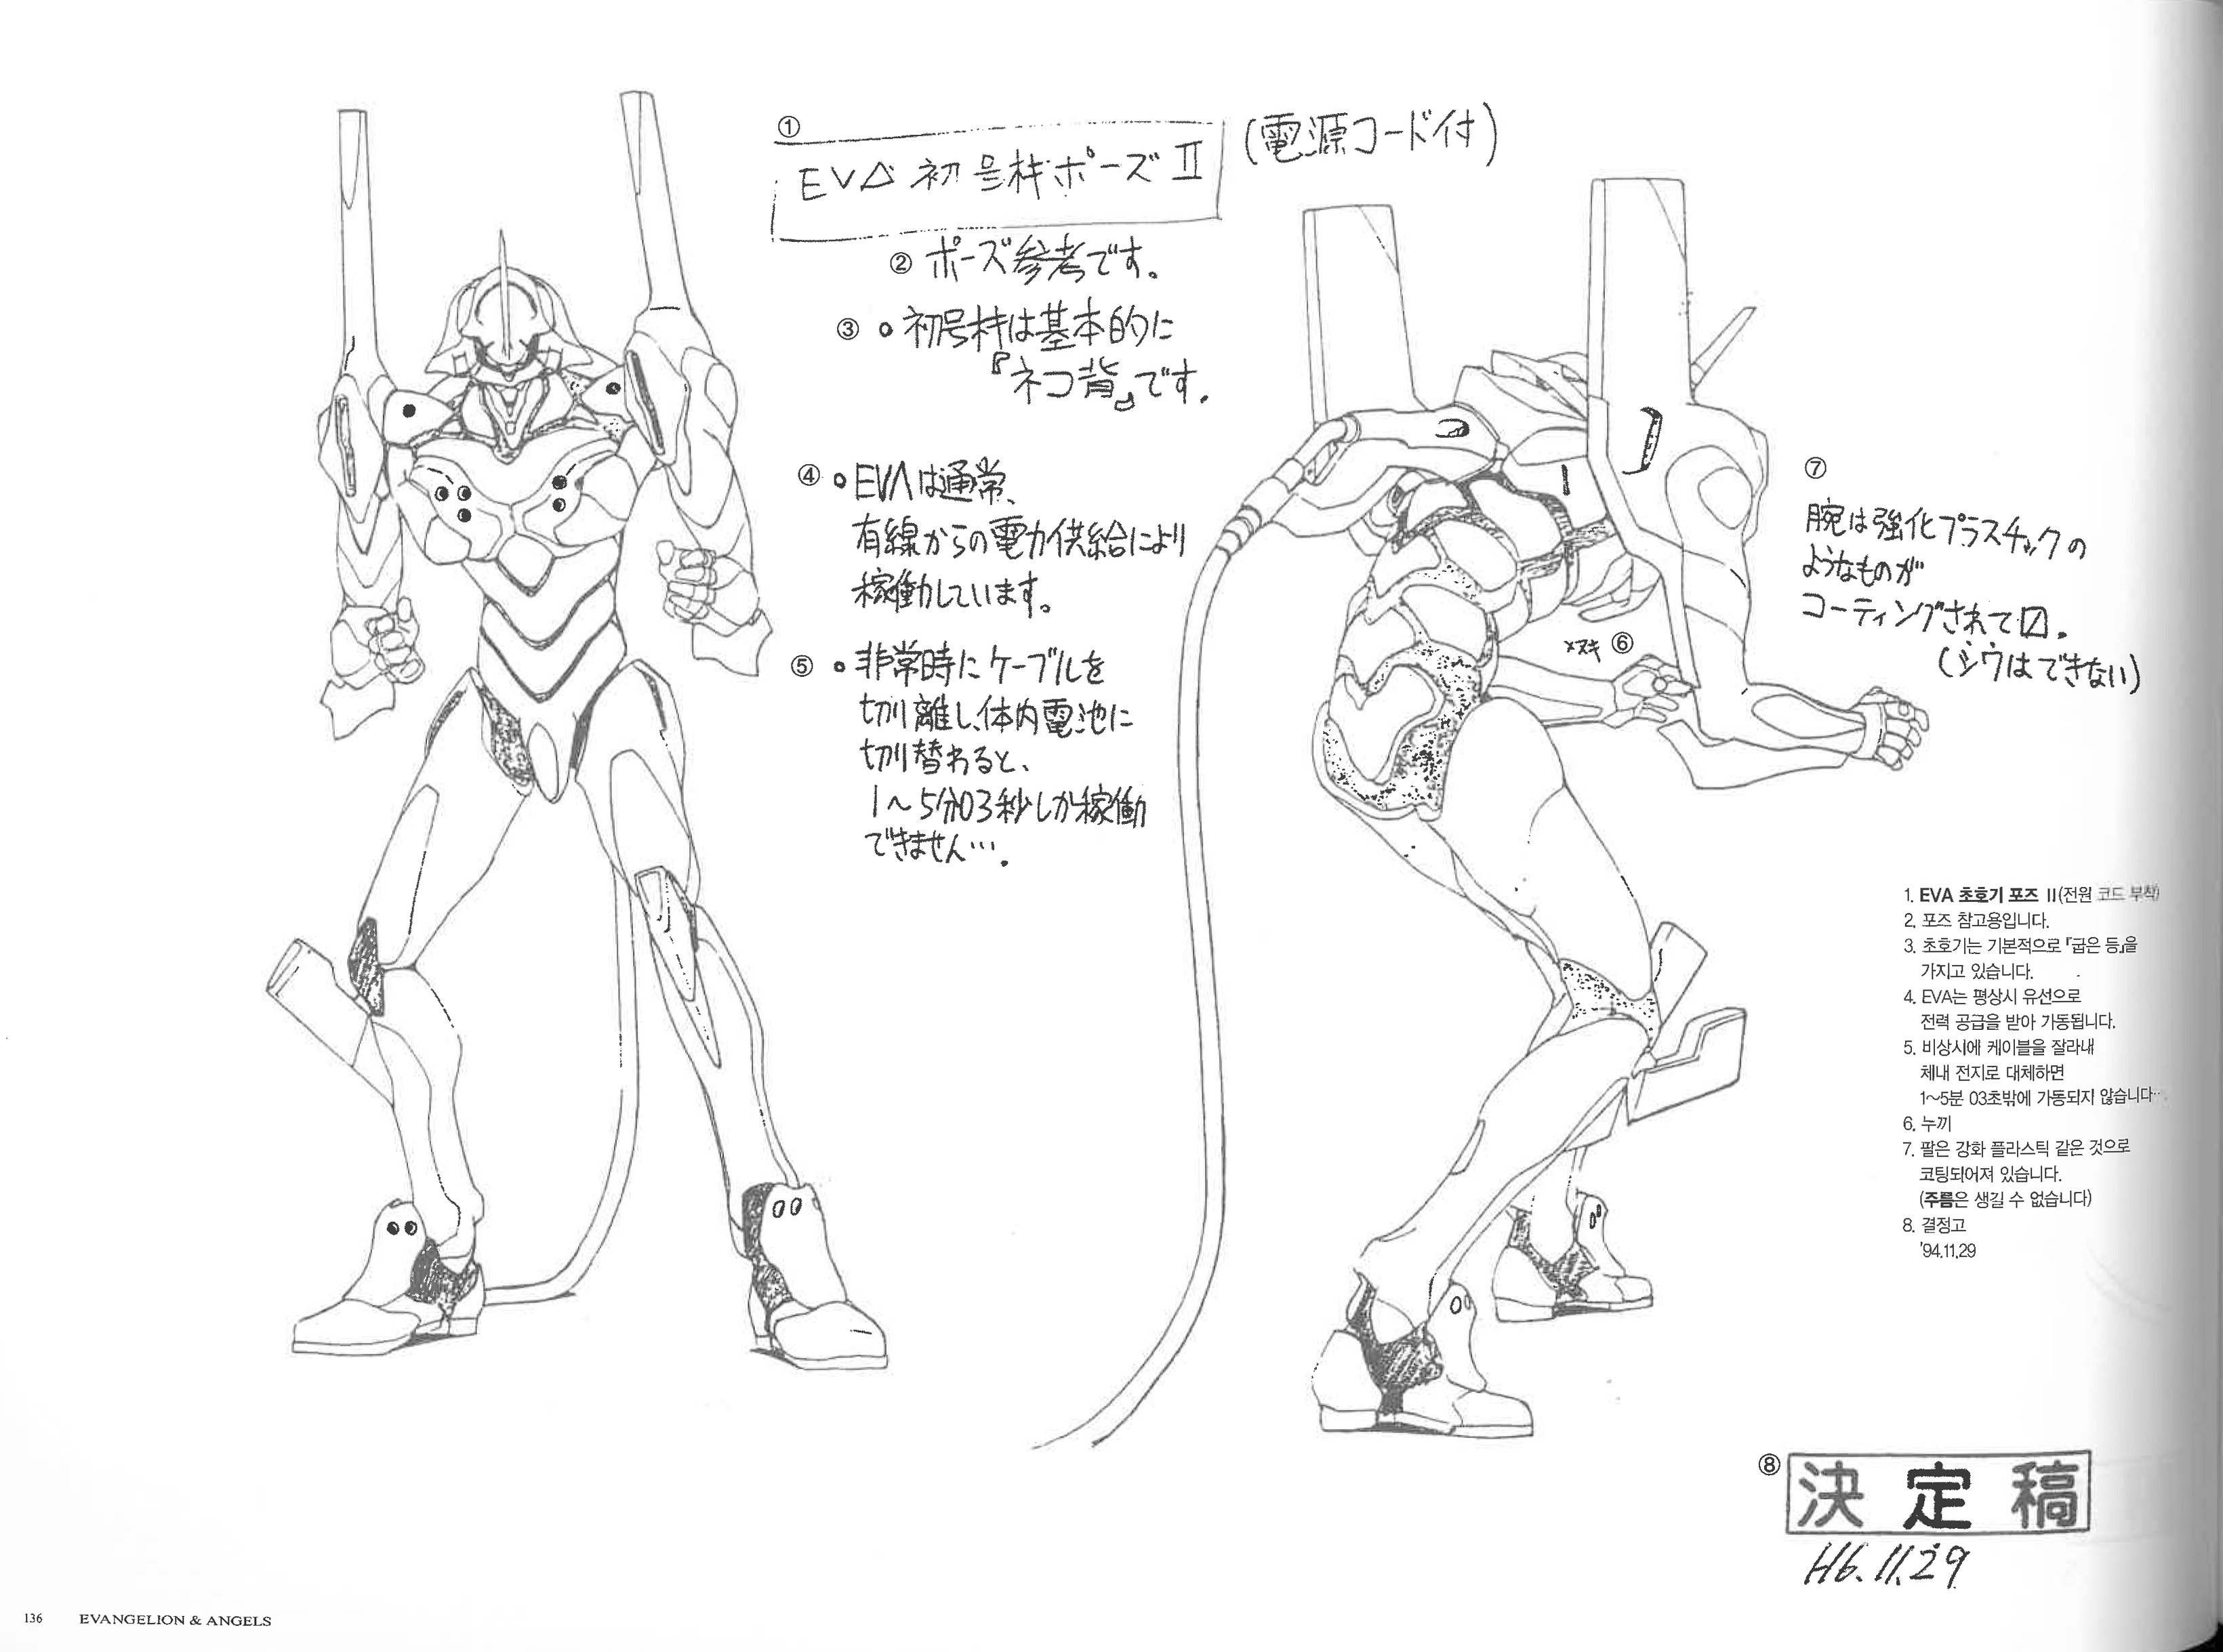 ①
EVA 初号機ポーズⅡ (電源コード付)
② ポーズ参考です。
③ 初号機は基本的に
『ネコ背』です.
④ EVAは通常、
有線からの電力供給により
稼働しています。
⑤ 非常時にケーブルを
切り離し、体内電池に
切り替わると、
1〜5分03秒しか稼働
できません….
⑦
腕は強化プラスチックの
ようなものが
コーティングされて
(シワはできない)
ヌキ ⑥
1. EVA 초호기 포즈 II(전원 코드 부착)
2. 포즈 참고용입니다.
3. 초호기는 기본적으로 『굽은 등』을
가지고 있습니다.
4. EVA는 평상시 유선으로
전력 공급을 받아 가동됩니다.
5. 비상시에 케이블을 잘라내
체내 전지로 대체하면
1~5분 03초밖에 가동되지 않습니다…
6. 누끼
7. 팔은 강화 플라스틱 같은 것으로
코팅되어져 있습니다.
(주름은 생길 수 없습니다)
8. 결정고
'94.11.29
⑧ 決定稿
H6.11.29
136 EVANGELION & ANGELS